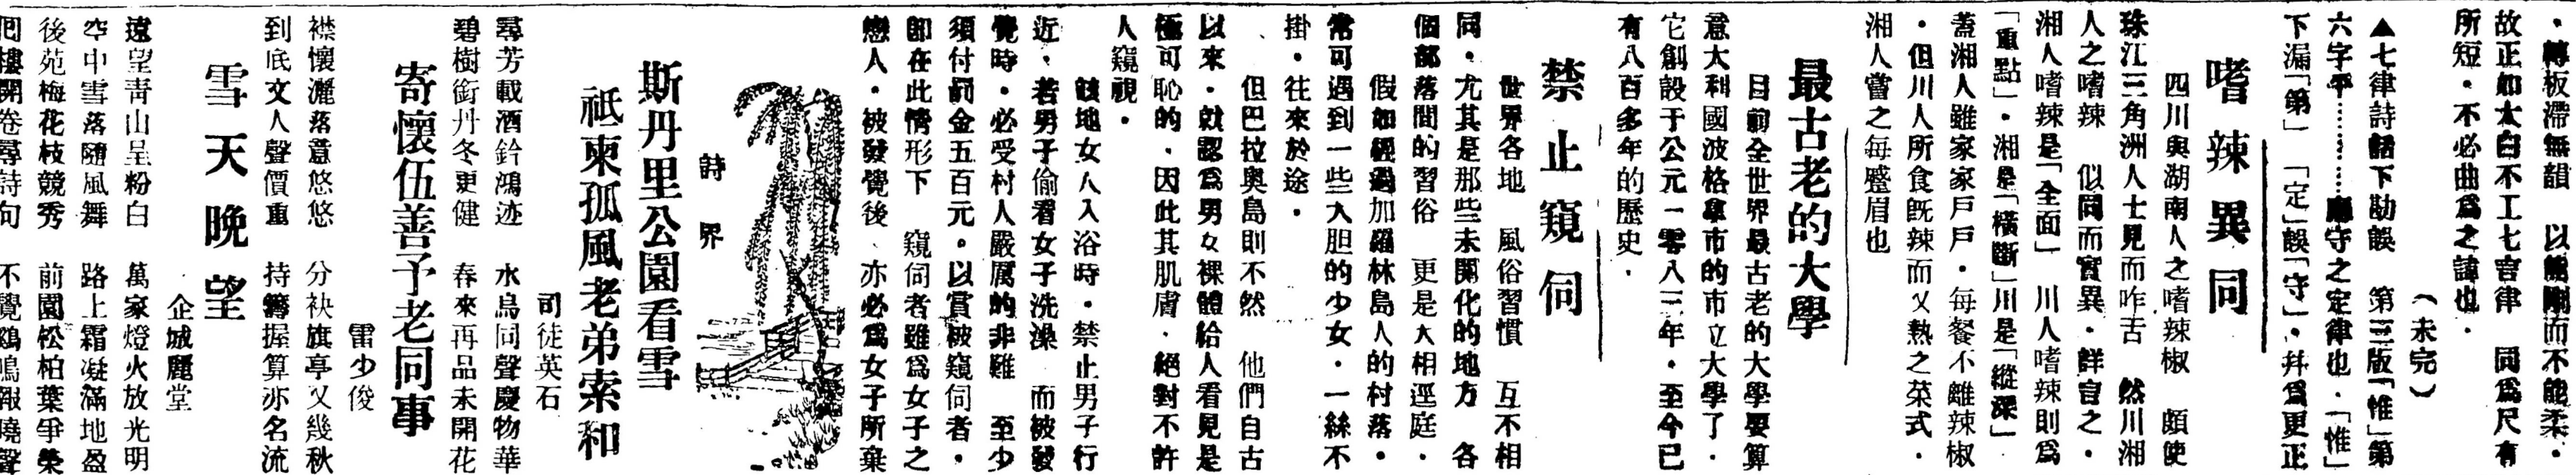 ・轉板滯無韻　以能剛而不能柔・
故正如太白不工七言律　同爲尺有
所短・不必曲爲之諱也・
（未完）
▲七律詩話下勘誤　第三版「惟」第
六字平………應守之定律也・「惟」
下漏「第」　「定」誤「守」・幷爲更正
嗜辣異同
四川與湖南人之嗜辣椒　頗使
珠江三角洲人士見而咋舌　然川湘
人之嗜辣　似同而實異・詳言之・
湘人嗜辣是「全面」　川人嗜辣則爲
「重點」・湘是「橫斷」川是「縱深」
蓋湘人雖家家戶戶・每餐不離辣椒
・但川人所食旣辣而又熱之菜式・
湘人嘗之每蹙眉也
最古老的大學
目前全世界最古老的大學要算
意大利國波格拿市的市立大學了・
它創設于公元一零八二年・至今已
有八百多年的歷史・
禁止窺伺
世界各地　風俗習慣　互不相
同・尤其是那些未開化的地方　各
個部落間的習俗　更是大相逕庭・
假如經過加羅林島人的村落・
常可遇到一些大胆的少女・一絲不
掛・往來於途・
但巴拉奧島則不然　他們自古
以來・就認爲男女裸體給人看見是
極可恥的・因此其肌膚・絕對不許
人窺視・
該地女人入浴時・禁止男子行
近・若男子偷看女子洗澡　而被發
覺時・必受村人嚴厲的非難　至少
須付罰金五百元。以賞被窺伺者・
卽在此情形下　窺伺者雖爲女子之
戀人・被發覺後、亦必爲女子所棄
詩界
斯丹里公園看雪
祇柬孤風老弟索和
司徒英石
尋芳載酒鈴鴻迹　水鳥同聲慶物華
碧樹銜丹冬更健　春來再品未開花
寄懷伍善予老同事
雷少俊
襟懷灑落意悠悠　分袂旗亭又幾秋
到底文人聲價重　持籌握算亦名流
雪天晚望
企城麗堂
遠望靑山呈粉白　萬家燈火放光明
空中雪落隨風舞　路上霜凝滿地盈
後苑梅花枝競秀　前園松柏葉爭榮
回樓開卷尋詩句　不覺鷄鳴報曉聲